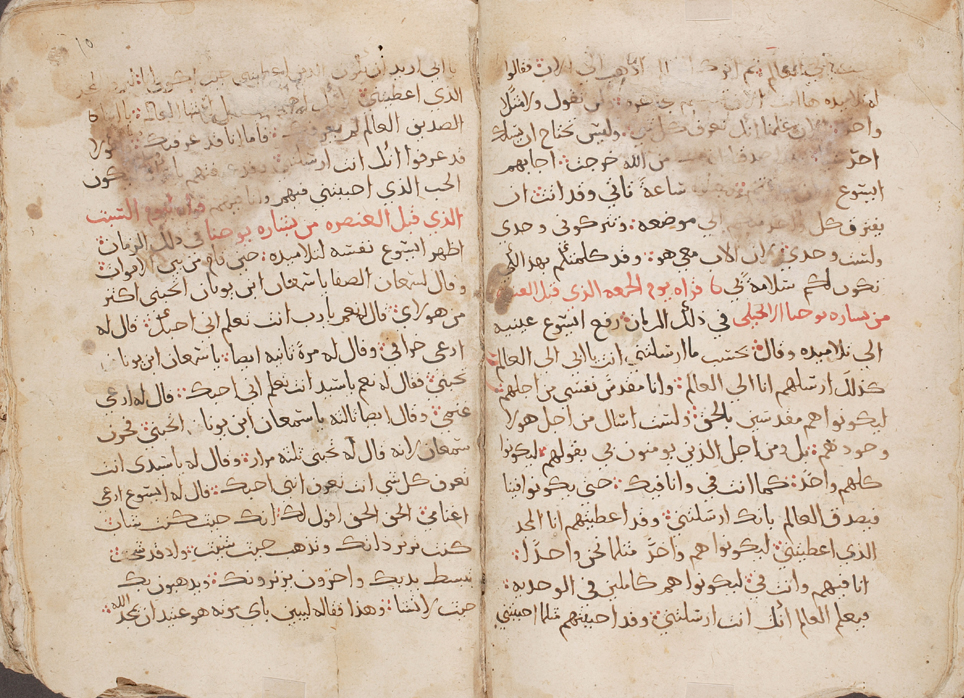 في العالم ثم اترك فقالوا
له تلاميذه ها انت الان تقول ولا مثلا
علمنا انك تعرف كل شي وليس تحتاج ان يسلك
احد من الله خرجت اجابهم
ايسوع ساعة تاتي وقد اتت ان
يفترق كل الى موضعه وتتركوني وحدي
ولست وحدي لان الاب معي هو وقد كلمتكم بهذا لكي
تكون لكم سلامة بي قراه يوم الجمعه الذي قبل
من بشاره يوحنا الانجيلي في ذلك الزمان رفع ايسوع عينيه
الى تلاميذه وقال بحسب ما ارسلتني انت يا ابي الى العالم
كذلك ارسلهم انا الى العالم وانا مقدس نفسي من اجلهم
ليكونوا هم مقدسين بالحق ولست اسال من اجل هولا
وحودهم بل ومن اجل الذين يومنون بي بقولهم ليكونوا
كلهم واحد كما انت في وانا فيك حتى يكونوا فينا
فيصدق العالم بانك ارسلتني وقد اعطيتهم انا المجد
الذي اعطيتني ليكونوا هم واحد مثلما نحن واحدا
انا فيهم وانت في ليكونوا هم كاملين في الوحديه
فيعلم العالم انك انت ارسلتني وقد احببتهم مثلما احببتني
١٥
يا ابي اريد ان الذين اعطيتني حيث اكون المجد
الذي اعطيتني انشا العالم
الصديق العالم لم يعرفك فاما انا قد عرفتك
قد عرفوا انك انت ارسلتني يكون
الحب الذي احببتني فيهم قراه يوم السبت
الذي قبل العنصره من بشاره يوحنا في ذلك الزمان
اظهر ايسوع نفسه لتلاميذه حين قام من بين الاموات
وقال لسمعان الصفا يا سمعان ابن يونان اتحبني اكثر
من هولاي قال له نعم يا رب انت تعلم اني احبك قال له
ارعى خرافي وقال له مرة ثانيه ايضا يا سمعان ابن يونان
تحبني فقال له نعم يا سيد انت تعلم اني احبك قال له ارعي
غنمي وقال ايضا ثالثه يا سمعان ابن يونا اتحبني فحزن
سمعان لانه قال له تحبني ثلثة مرار وقال له يا سيدي انت
تعرف كل شي انت تعرف انني احبك قال له ايسوع ارعي
اغنامي الحق الحق اقول لك انك حيث كنت شاب
كنت تزنر ذاتك وتذهب حيث شيت واذ قد شخت
تبسط يديك واخرون يزنرونك ويذهبون بك
حيث لا تشا وهذا فقاله ليبين باي موته هو عتيد ان يمجد الله